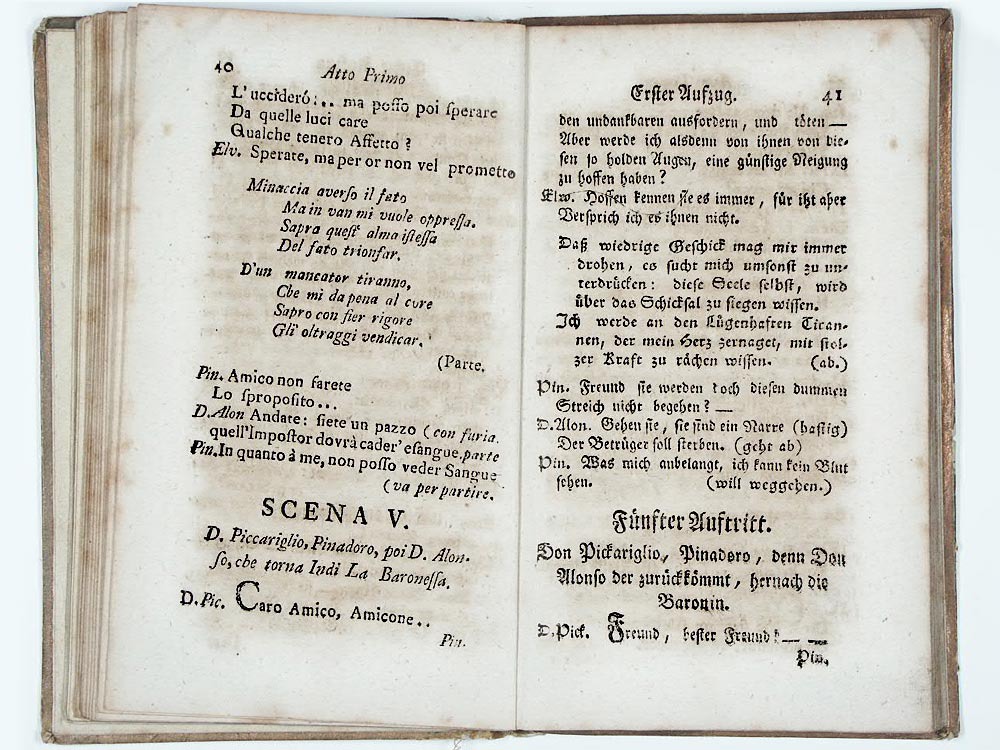 40
Atto Primo
L'ucciderò:.. ma posso poi sperare
Da quelle luci care
Qualche tenero Affetto ?
Elv. Sperate, ma per or non vel prometto
Minaccia averso il fato
Ma in van mi vuole oppressa.
Sapra quest' alma istessa
Del fato trionfar.
D'un mancator tiranno,
Che mi da pena al core
Sapro con fier rigore
Gli' oltraggi vendicar.
(Parte.
Pin. Amico non farete
Lo sproposito...
D. Alon Andate: siete un pazzo (con furia.
quell'Impostor dovrà cader' esangue. parte
Pin. In quanto à me, non posso veder Sangue
(va per partire.
SCENA V.
D. Piccariglio, Pinadoro, poi D. Alon-
so, che torna Indi La Baronessa.
D. Pic. Caro Amico, Amicone..
Pin.
Erster Aufzug. 41
den undankbaren ausfordern, und töten —
Aber werde ich alsdenn von ihnen von die-
sen so holden Augen, eine günstige Neigung
zu hoffen haben ?
Elw. Hoffen kennen sie es immer, für itzt aber
Versprich ich es ihnen nicht.
Daß wiedrige Geschick mag mir immer
drohen, es sucht mich umsonst zu un-
terdrücken: diese Seele selbst, wird
über das Schicksal zu siegen wissen.
Ich werde an den Lügenhaften Tiran-
nen, der mein Herz zernaget, mit stol-
zer Kraft zu rächen wissen. (ab.)
Pin. Freund sie werden doch diesen dummen
Streich nicht begehen ? —
D. Alon. Gehen sie, sie sind ein Narre (hastig)
Der Betrüger soll sterben. (geht ab)
Pin. Was mich anbelangt, ich kann kein Blut
sehen. (will weggehen.)
Fünfter Auftritt.
Don Pickariglio, Pinadoro, denn Don
Alonso der zurückkömmt, hernach die
Baronin.
D. Pick. Freund, bester Freund! — —
Pin.